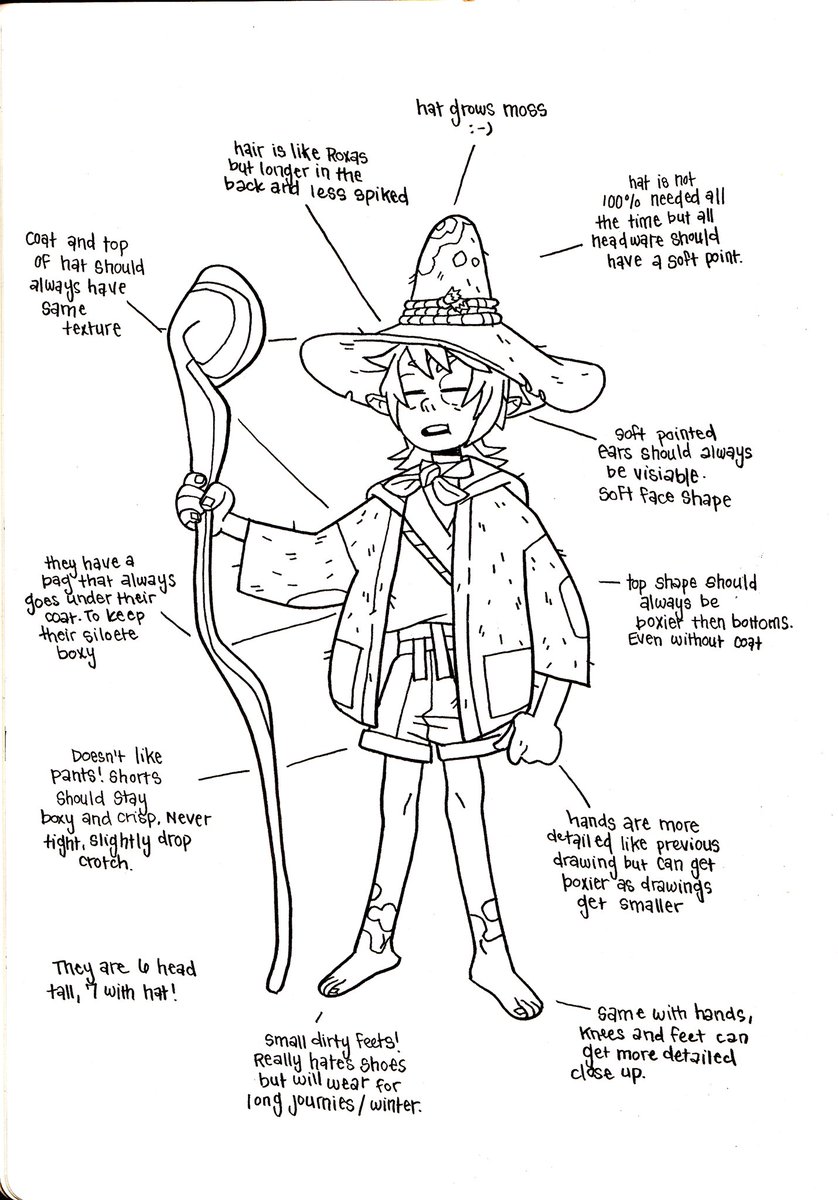 hat grows moss
:-)
hair is like Roxas
but longer in the
back and less spiked
hat is not
100% needed all
the time but all
headware should
have a soft point.
Coat and top
of hat should
always have
same
texture
soft pointed
ears should always
be visiable.
soft face shape
they have a
bag that always
goes under their
coat. To keep
their siloete
boxy
top shape should
always be
boxier then bottoms.
Even without coat
Doesn't like
pants! shorts
should stay
boxy and crisp. Never
tight, slightly drop
crotch.
hands are more
detailed like previous
drawing but can get
boxier as drawings
get smaller
They are 6 head
tall, 7 with hat!
same with hands,
knees and feet can
get more detailed
close up.
small dirty feets!
Really hates shoes
but will wear for
long journies/winter.